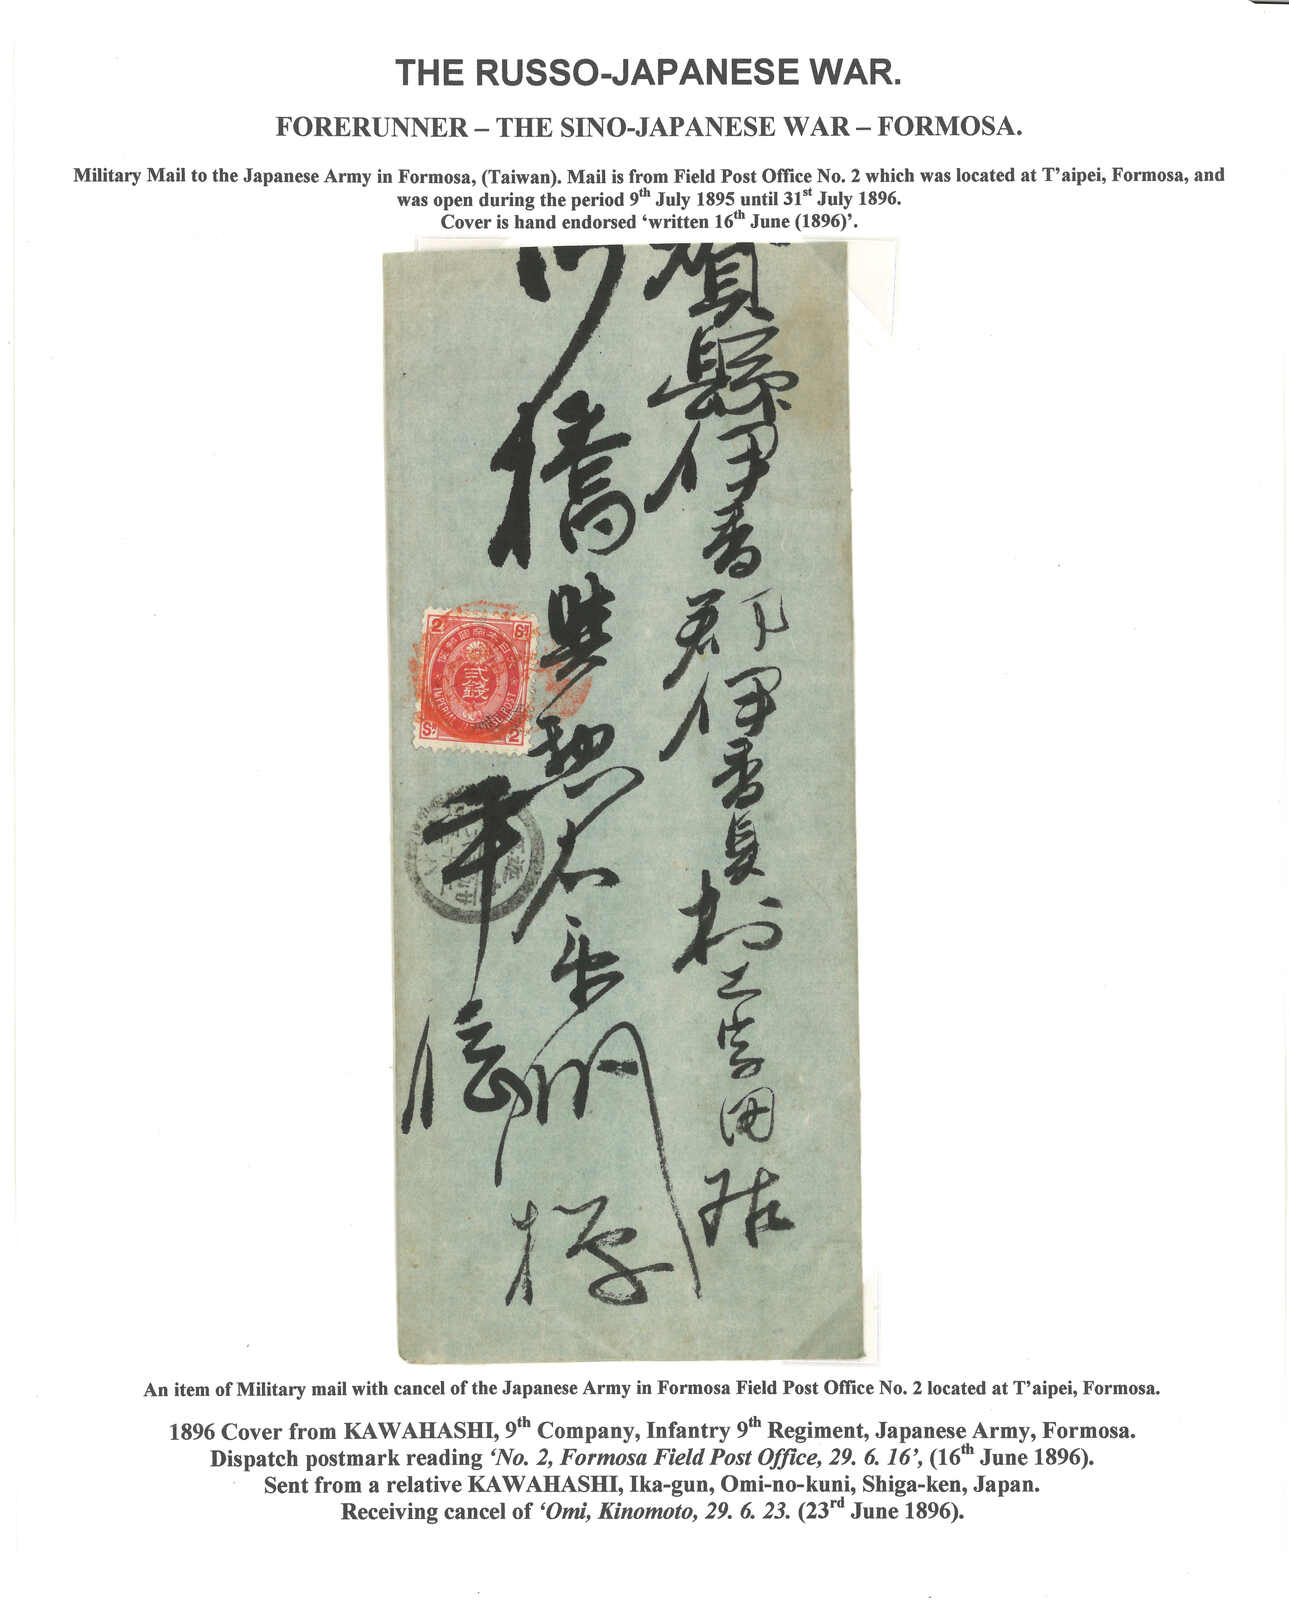 THE RUSSO-JAPANESE WAR.
FORERUNNER – THE SINO-JAPANESE WAR – FORMOSA.
Military Mail to the Japanese Army in Formosa, (Taiwan). Mail is from Field Post Office No. 2 which was located at T'aipei, Formosa, and
was open during the period 9th July 1895 until 31st July 1896.
Cover is hand endorsed ‘written 16th June (1896)’.
賀縣伊香郡伊香具村上字田居
川橋與惣右衛門様
平信
2 Sn
貳錢
IMPERIAL JAPANESE POST
Sn 2
An item of Military mail with cancel of the Japanese Army in Formosa Field Post Office No. 2 located at T'aipei, Formosa.
1896 Cover from KAWAHASHI, 9th Company, Infantry 9th Regiment, Japanese Army, Formosa.
Dispatch postmark reading ‘No. 2, Formosa Field Post Office, 29. 6. 16’, (16th June 1896).
Sent from a relative KAWAHASHI, Ika-gun, Omi-no-kuni, Shiga-ken, Japan.
Receiving cancel of ‘Omi, Kinomoto, 29. 6. 23. (23rd June 1896).